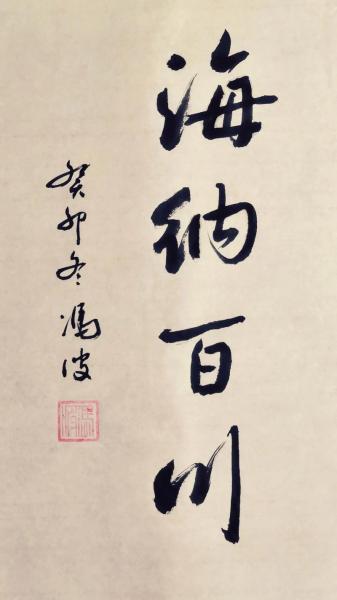 海纳百川
癸卯冬冯波